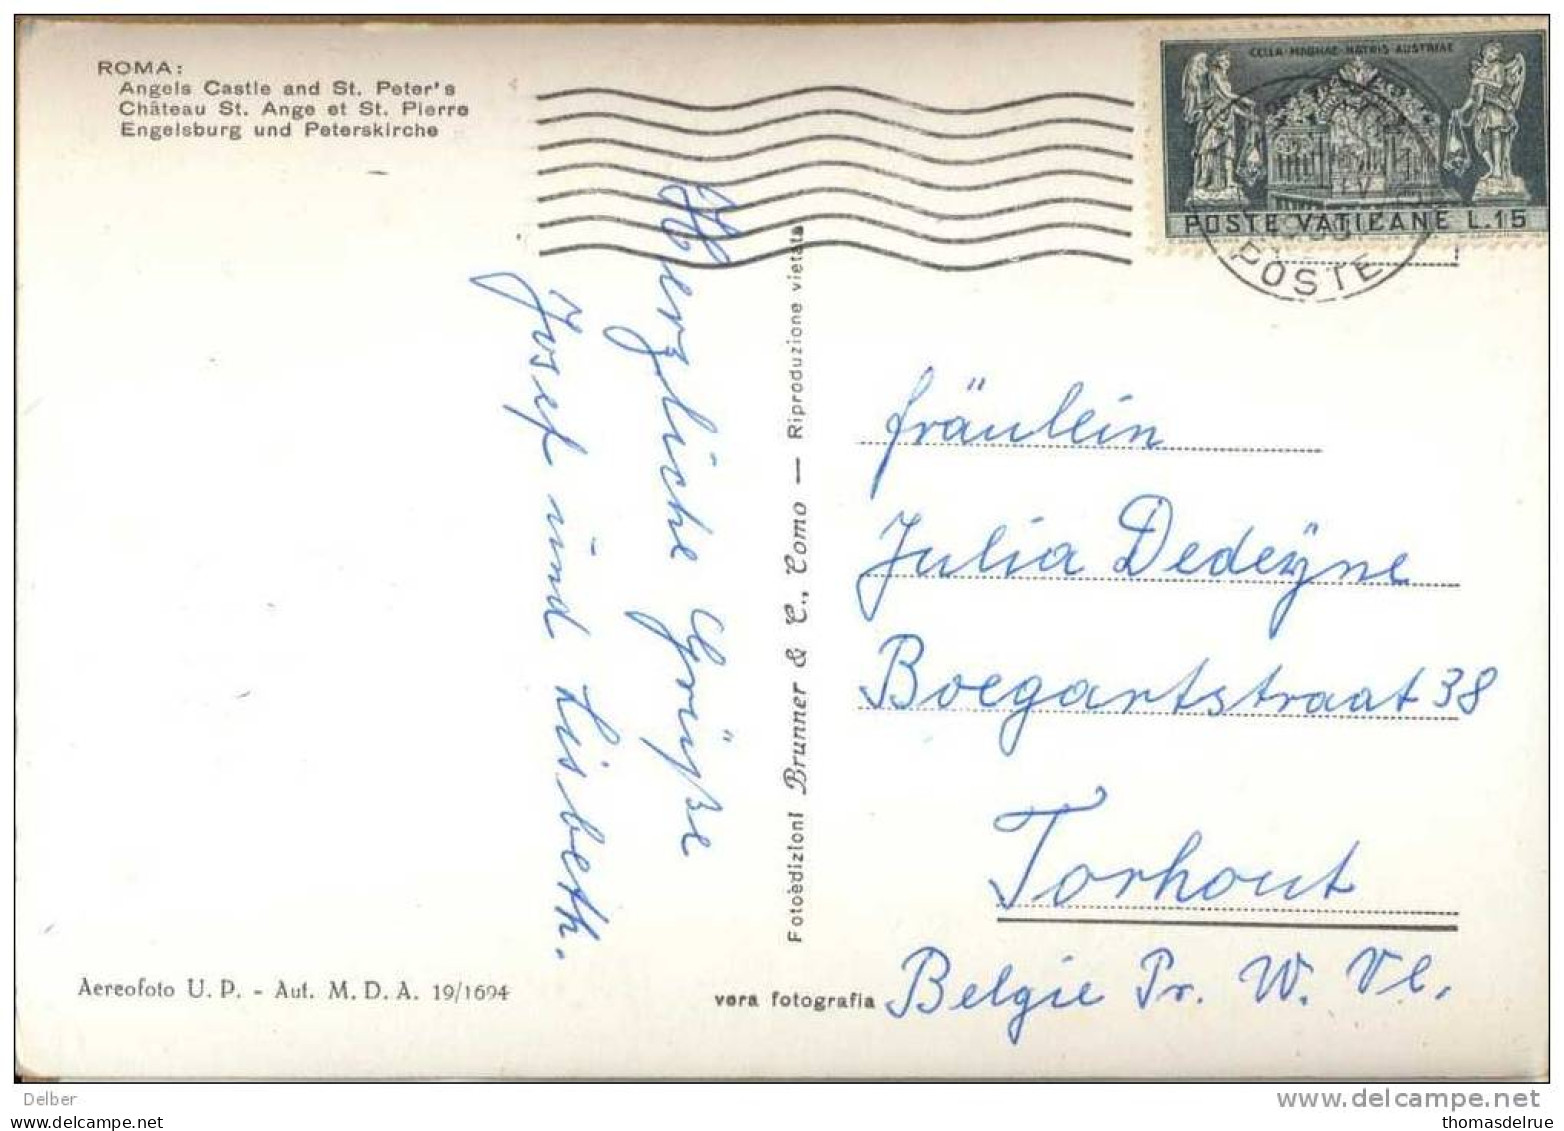 ROMA:
Angels Castle and St. Peter's
Château St. Ange et St. Pierre
Engelsburg und Peterskirche
CELLA MAGNAE MATRIS AUSTRIAE
POSTE VATICANE L.15
POSTE
Herzliche Grüße
Josef und Lisbeth.
Fotoèdizioni Brunner & C., Como — Riproduzione vietata
Fräulein
Julia Dedeÿne
Boegartstraat 38
Torhout
Belgie Pr. W. Vl.
Aereofoto U. P. - Aut. M. D. A. 19/1694
vera fotografia
Delber
www.delcampe.net
https://www.delcampe.net
thomasdelrue